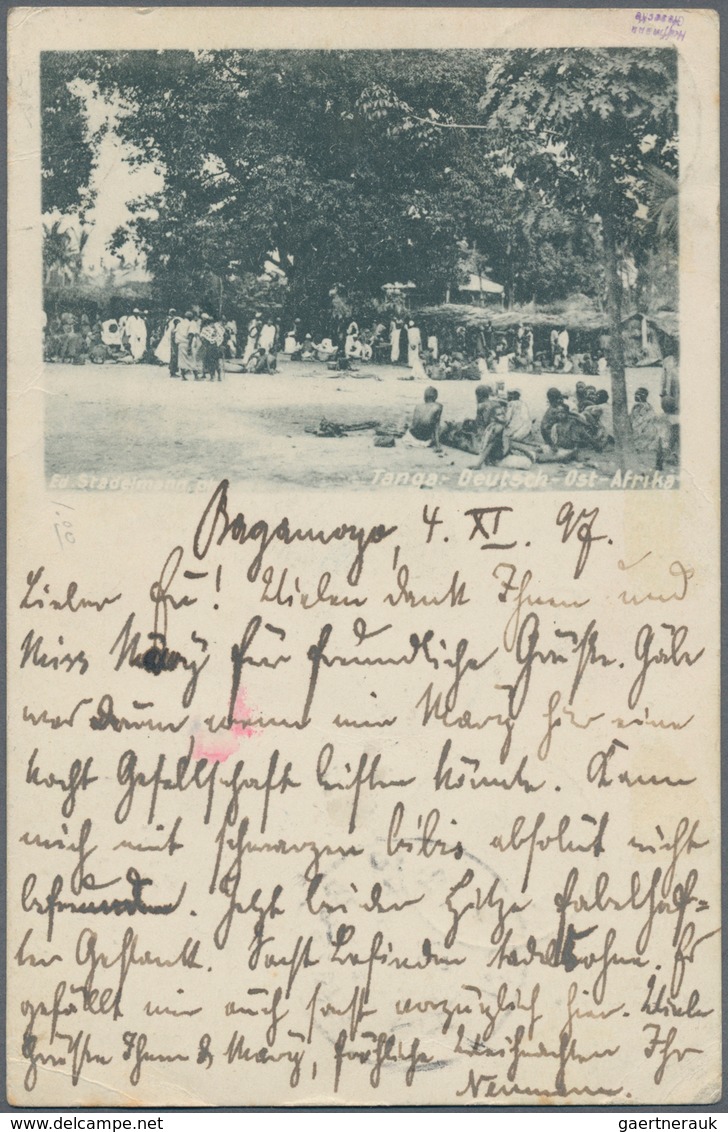 Hoffmann
Ed. Stadelmann,
Tanga - Deutsch-Ost-Afrika
1.00
Bagamoyo, 4. XI. 97.
Lieber Fu! Vielen Dank Ihnen und
Miss Mary für freundliche Grüße. Gäbe
was darum, wenn mir Mary hier eine
Nacht Gesellschaft leisten könnte. Kann
mich mit schwarzen bibis absolut nicht
befreunden. Jetzt bei der Hitze fabelhaf=
ter Gestank. Sonst Befinden tadellos ohne. Es
gefällt mir auch sonst vorzüglich hier. Viele
Grüße Ihnen & Mary, fröhliche Weihnachten Ihr
Neumann.
gaertnerauk